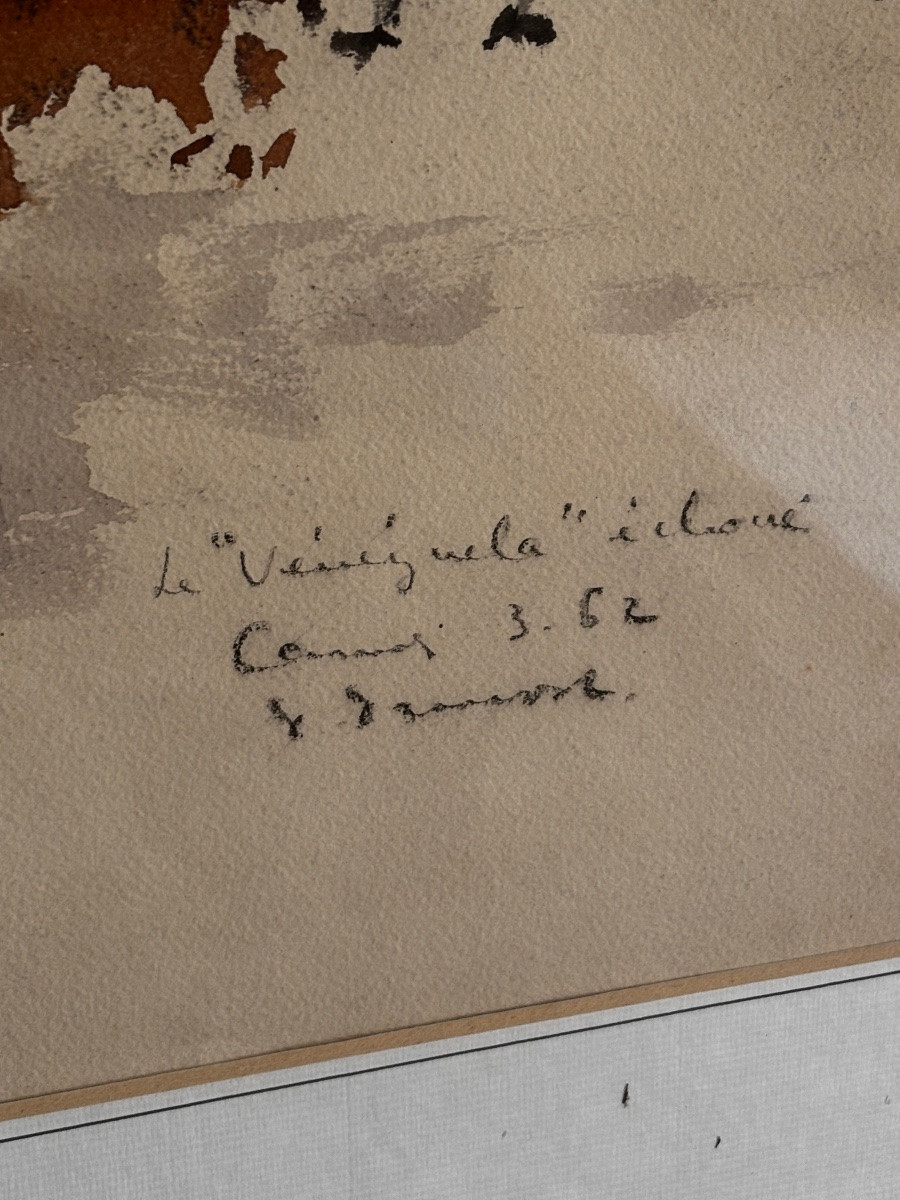 Le "Vénéguela" échoué
Cannes 3.62